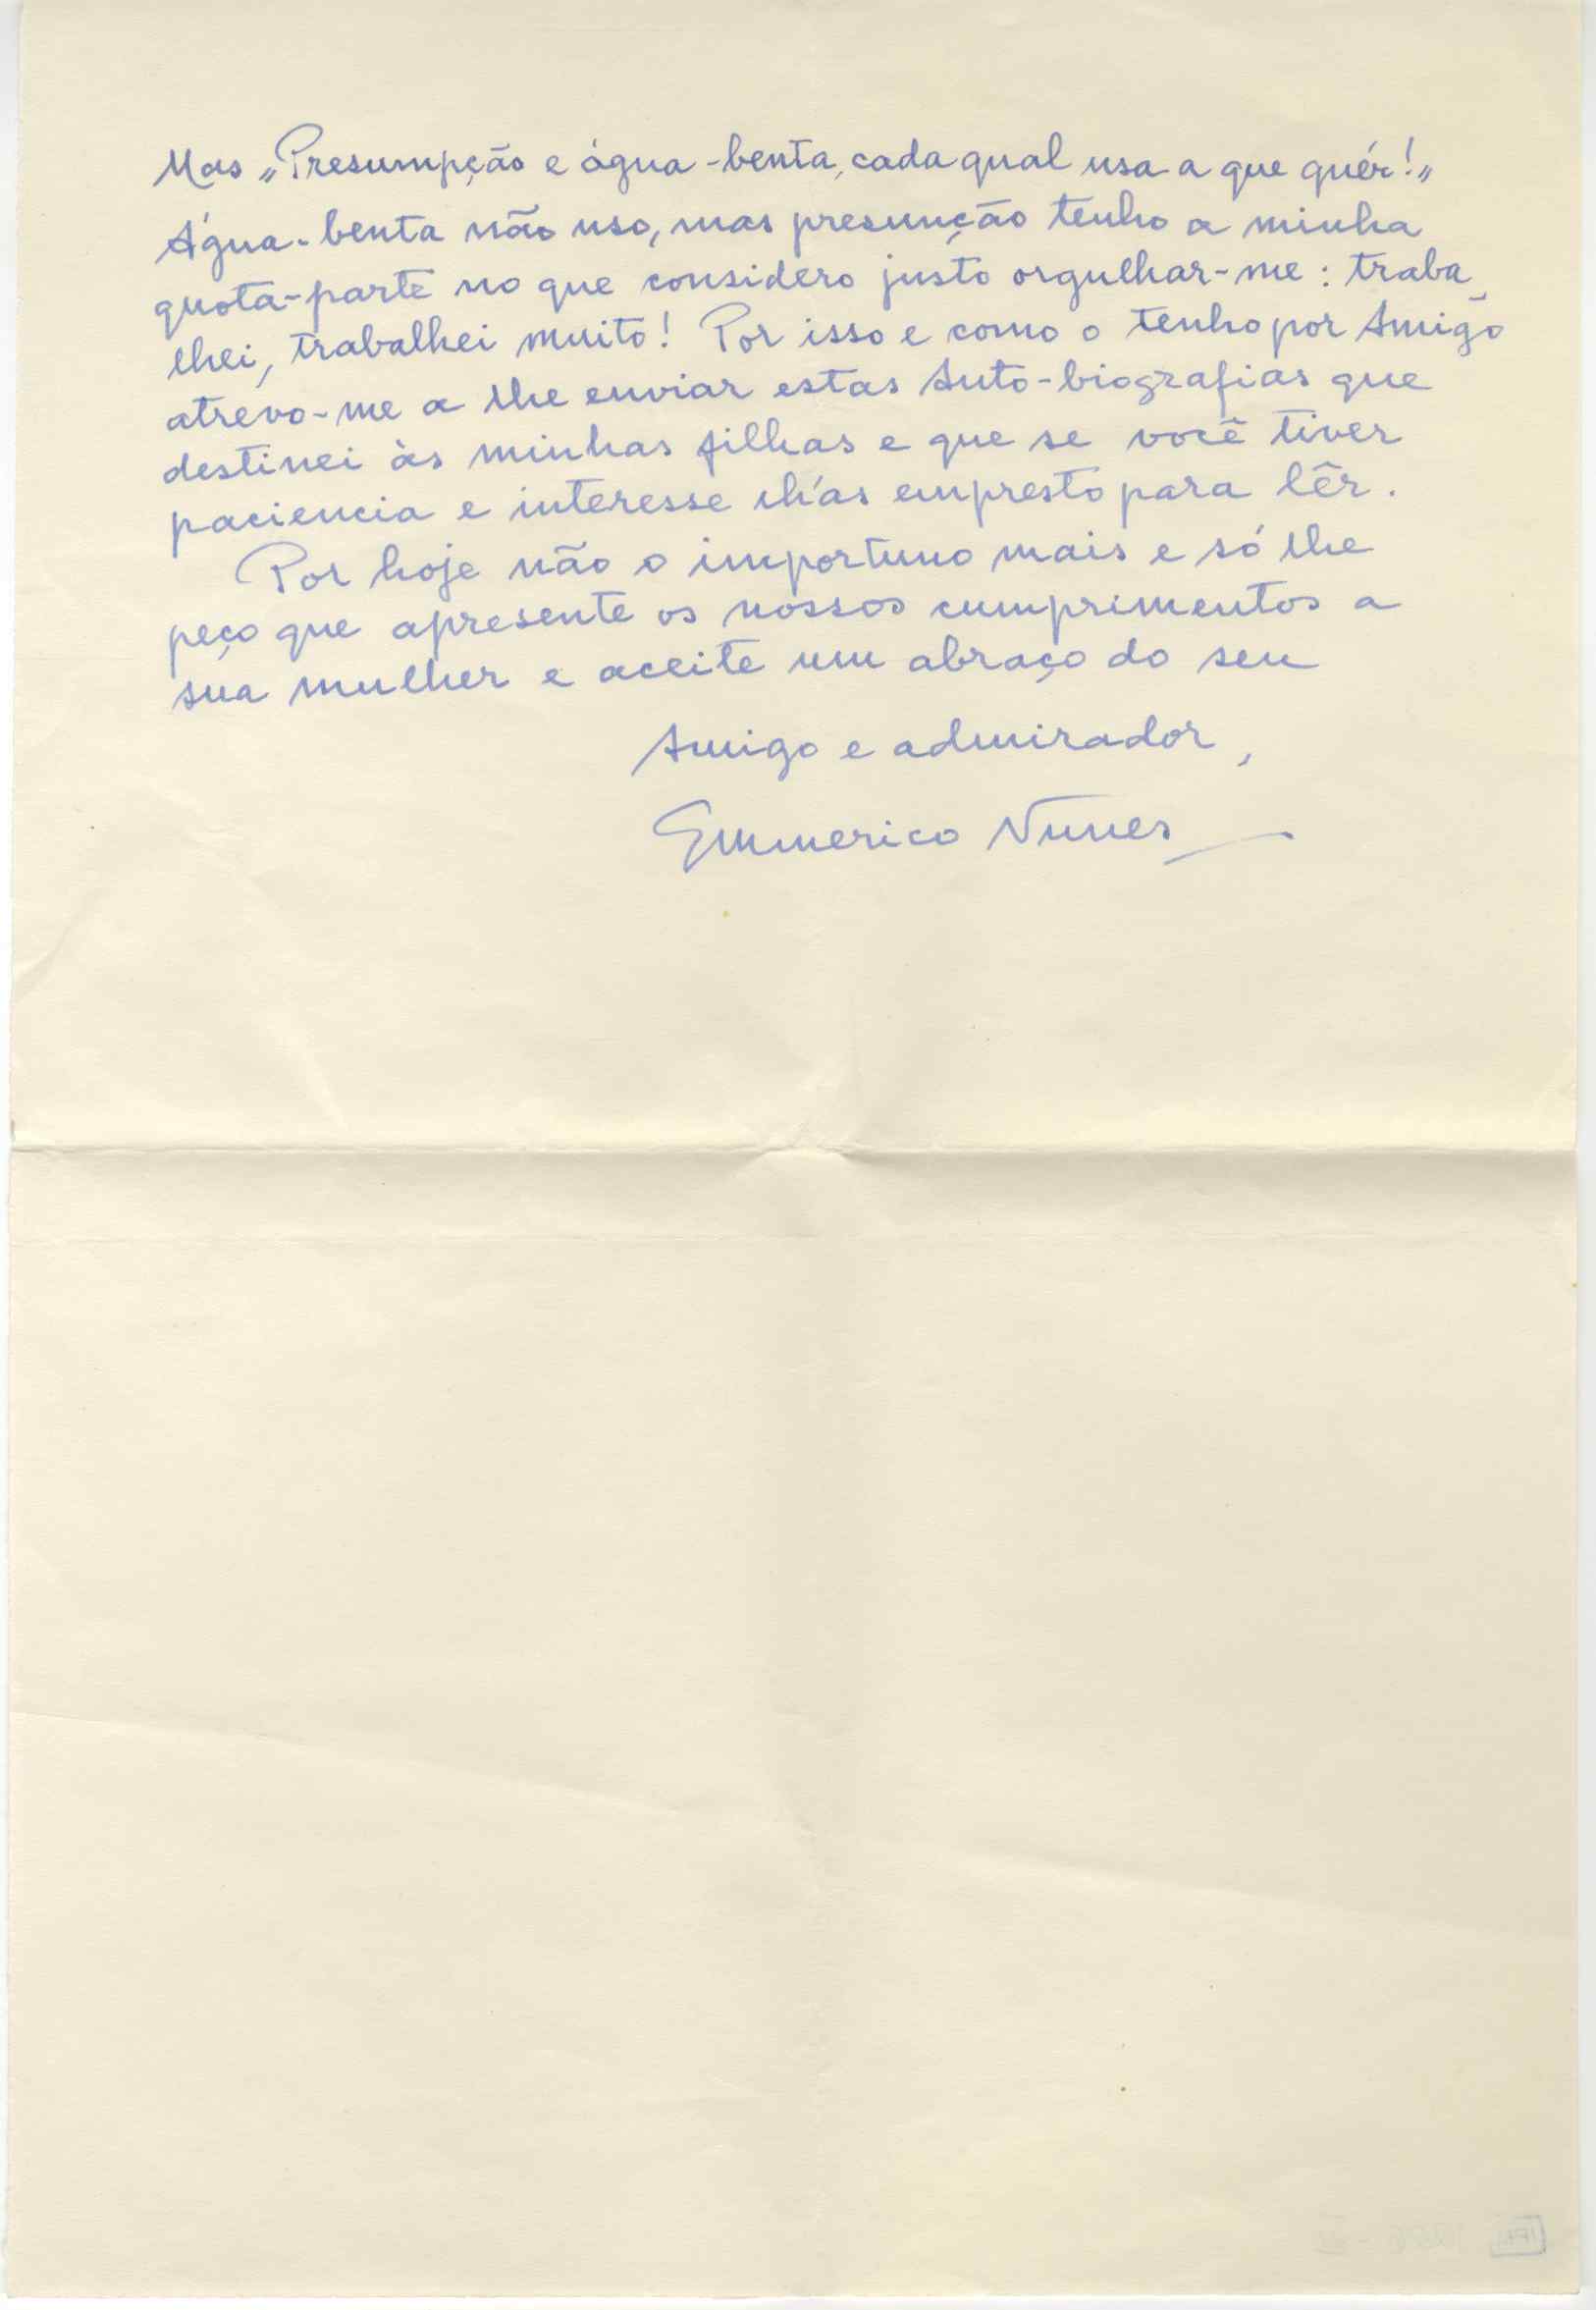 Mas „Presumpção e água-benta, cada qual usa a que quér!„
Água-benta não uso, mas presunção tenho a minha
quota-parte no que considero justo orgulhar-me: traba-
lhei, trabalhei muito! Por isso e como o tenho por Amigo
atrevo-me a lhe enviar estas Auto-biografias que
destinei às minhas filhas e que se você tiver
paciencia e interesse lh'as empresto para lêr.
Por hoje não o importuno mais e só lhe
peço que apresente os nossos cumprimentos a
sua mulher e aceite um abraço do seu
Amigo e admirador,
Emmerico Nunes